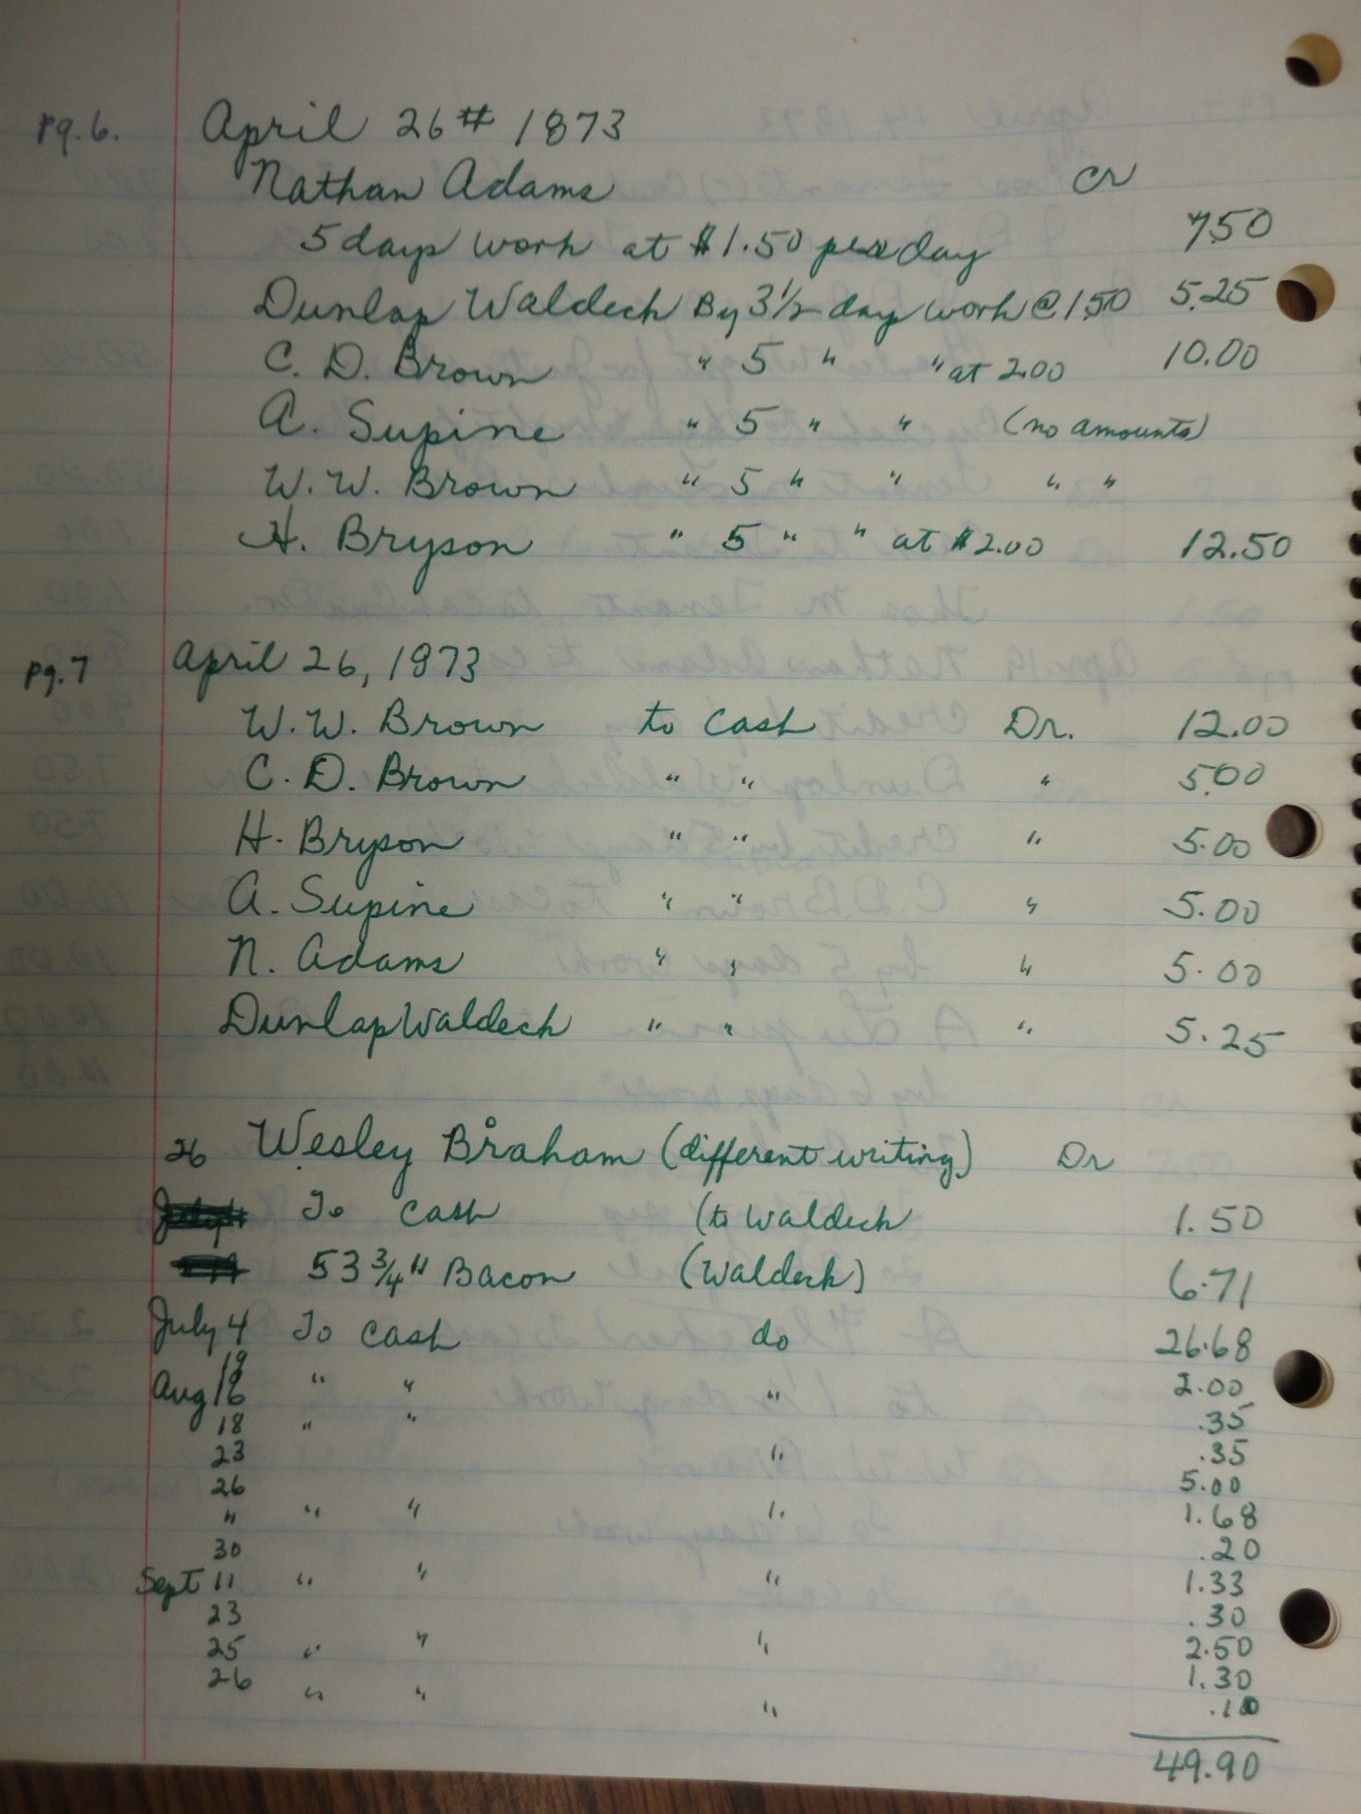 pg. 6. April 26th 1873
Nathan Adams Cr
5 days work at $1.50 per day 7.50
Dunlap Waldech By 3 1/2 day work @ 1.50 5.25
C. D. Brown " 5 " " at 2.00 10.00
A. Supine " 5 " " (no amounts)
W. W. Brown " 5 " " " "
H. Bryson " 5 " " at $2.00 12.50
pg. 7 April 26, 1873
W. W. Brown to cash Dr. 12.00
C. D. Brown " " " 5.00
H. Bryson " " " 5.00
A. Supine " " " 5.00
N. Adams " " " 5.00
Dunlap Waldech " " " 5.25
26 Wesley Braham (different writing) Dr
To cash (to Waldech 1.50
53 3/4 " Bacon (Waldech) 6.71
July 4 To cash do 26.68
19
Aug 16 " " " 2.00
18 " " .35
23 " .35
26 5.00
" " " " 1.68
30 .20
Sept 11 " " " 1.33
23 .30
25 " " " 2.50
26 1.30
" " " .10
49.90